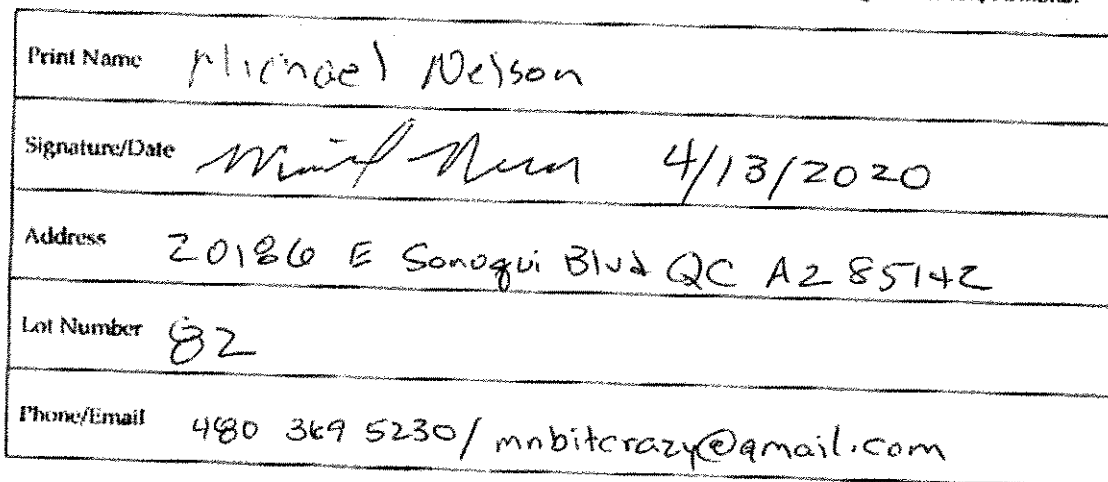 Print Name Michael Nelson
Signature/Date 4/13/2020
Address 20186 E Sonoqui Blvd QC AZ 85142
Lot Number 82
Phone/Email 480 369 5230/ mnbitcrazy@gmail.com